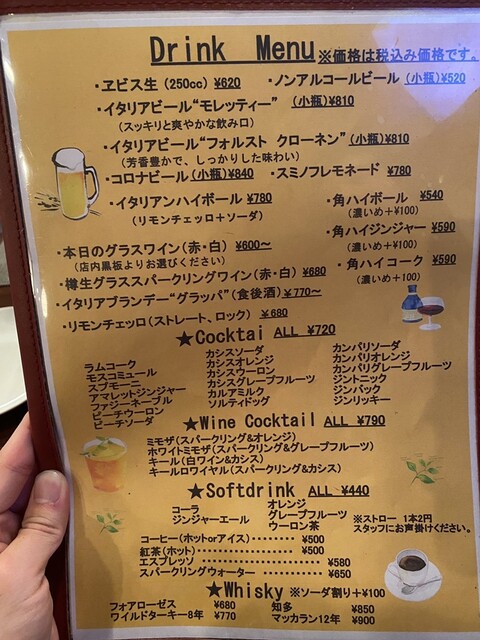 Drink Menu ※価格は税込み価格です。
・ヱビス生(250cc) ¥620 ・ノンアルコールビール (小瓶)¥520
・イタリアビール“モレッティー” (小瓶)¥810
(スッキリと爽やかな飲み口)
・イタリアビール“フォルスト クローネン”(小瓶)¥810
(芳香豊かで、しっかりした味わい)
・コロナビール(小瓶)¥840 ・スミノフレモネード ¥780
・イタリアンハイボール ¥780
(リモンチェッロ+ソーダ)
・角ハイボール ¥540
(濃いめ+¥100)
・角ハイジンジャー ¥590
(濃いめ+¥100)
・角ハイコーク ¥590
(濃いめ+100)
・本日のグラスワイン(赤・白) ¥600〜
(店内黒板よりお選びください)
・樽生グラススパークリングワイン(赤・白) ¥680
・イタリアブランデー“グラッパ”(食後酒)¥770〜
・リモンチェッロ(ストレート、ロック) ¥680
★Cocktai ALL ¥720
ラムコーク
モスコミュール
スプモーニ
アマレットジンジャー
ファジーネーブル
ピーチウーロン
ピーチソーダ
カシスソーダ
カシスオレンジ
カシスウーロン
カシスグレープフルーツ
カルアミルク
ソルティドッグ
カンパリソーダ
カンパリオレンジ
カンパリグレープフルーツ
ジントニック
ジンバック
ジンリッキー
★Wine Cocktail ALL ¥790
ミモザ(スパークリング&オレンジ)
ホワイトミモザ(スパークリング&グレープフルーツ)
キール(白ワイン&カシス)
キールロワイヤル(スパークリング&カシス)
★Softdrink ALL ¥440
コーラ
ジンジャーエール
オレンジ
グレープフルーツ
ウーロン茶
※ストロー 1本2円
スタッフにお声掛けください。
コーヒー(ホットorアイス)‥‥‥‥ ¥500
紅茶(ホット)‥‥‥‥‥‥‥‥ ¥500
エスプレッソ ‥‥‥‥‥‥‥‥‥ ¥580
スパークリングウォーター ‥‥‥‥ ¥650
★Whisky ※ソーダ割り+¥100
フォアローゼス ¥680
ワイルドターキー8年 ¥770
知多 ¥850
マッカラン12年 ¥900